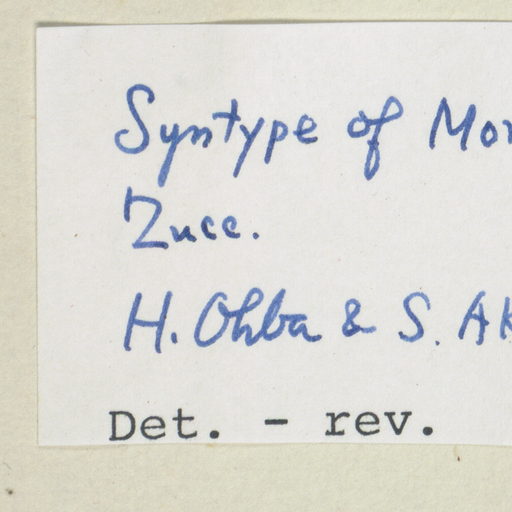 Syntype of Mor
Zucc.
H. Ohba & S. Ak
Det. - rev.